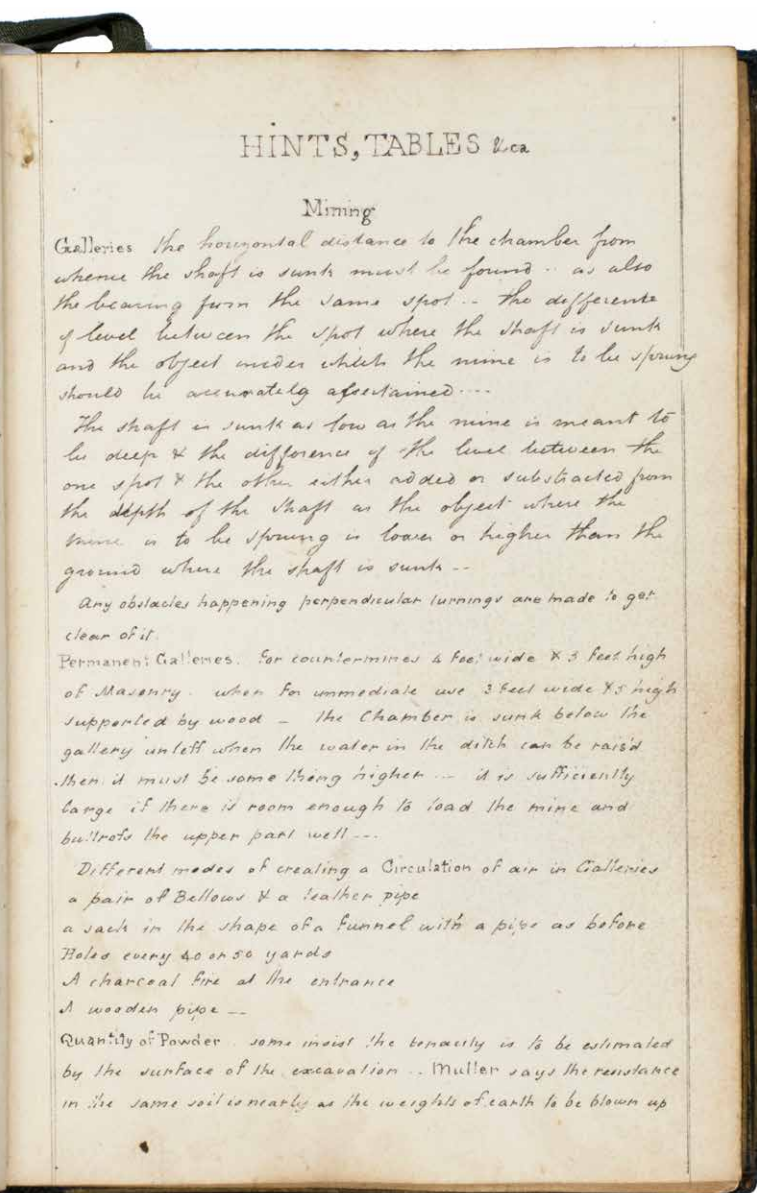 HINTS, TABLES &ca
Mining
Galleries the horizontal distance to the chamber from
whence the shaft is sunk must be found .. as also
the bearing from the same spot .. the difference
of level between the spot where the shaft is sunk
and the object under which the mine is to be sprung
should be accurately assertained ....
The shaft is sunk as low as the mine is meant to
be deep & the difference of the level between the
one spot & the other either added or substracted from
the depth of the shaft as the object where the
mine is to be sprung is lower or higher than the
ground where the shaft is sunk --
Any obstacles happening perpendicular turnings are made to get
clear of it.
Permanent Galleries. for countermines 4 feet wide & 5 feet high
of Masonry. when for immediate use 3 feet wide & 5 high
supported by wood – the Chamber is sunk below the
gallery unless when the water in the ditch can be rais'd
then it must be some thing higher --- it is sufficiently
large if there is room enough to load the mine and
buttress the upper part well ---
Different modes of creating a Circulation of air in Galleries
a pair of Bellows & a leather pipe
a sack in the shape of a funnel with a pipe as before
Holes every 40 or 50 yards
A charcoal fire at the entrance
A wooden pipe --
Quantity of Powder. some insist the tenacity is to be estimated
by the surface of the excavation .. Muller says the resistance
in the same soil is nearly as the weights of earth to be blown up